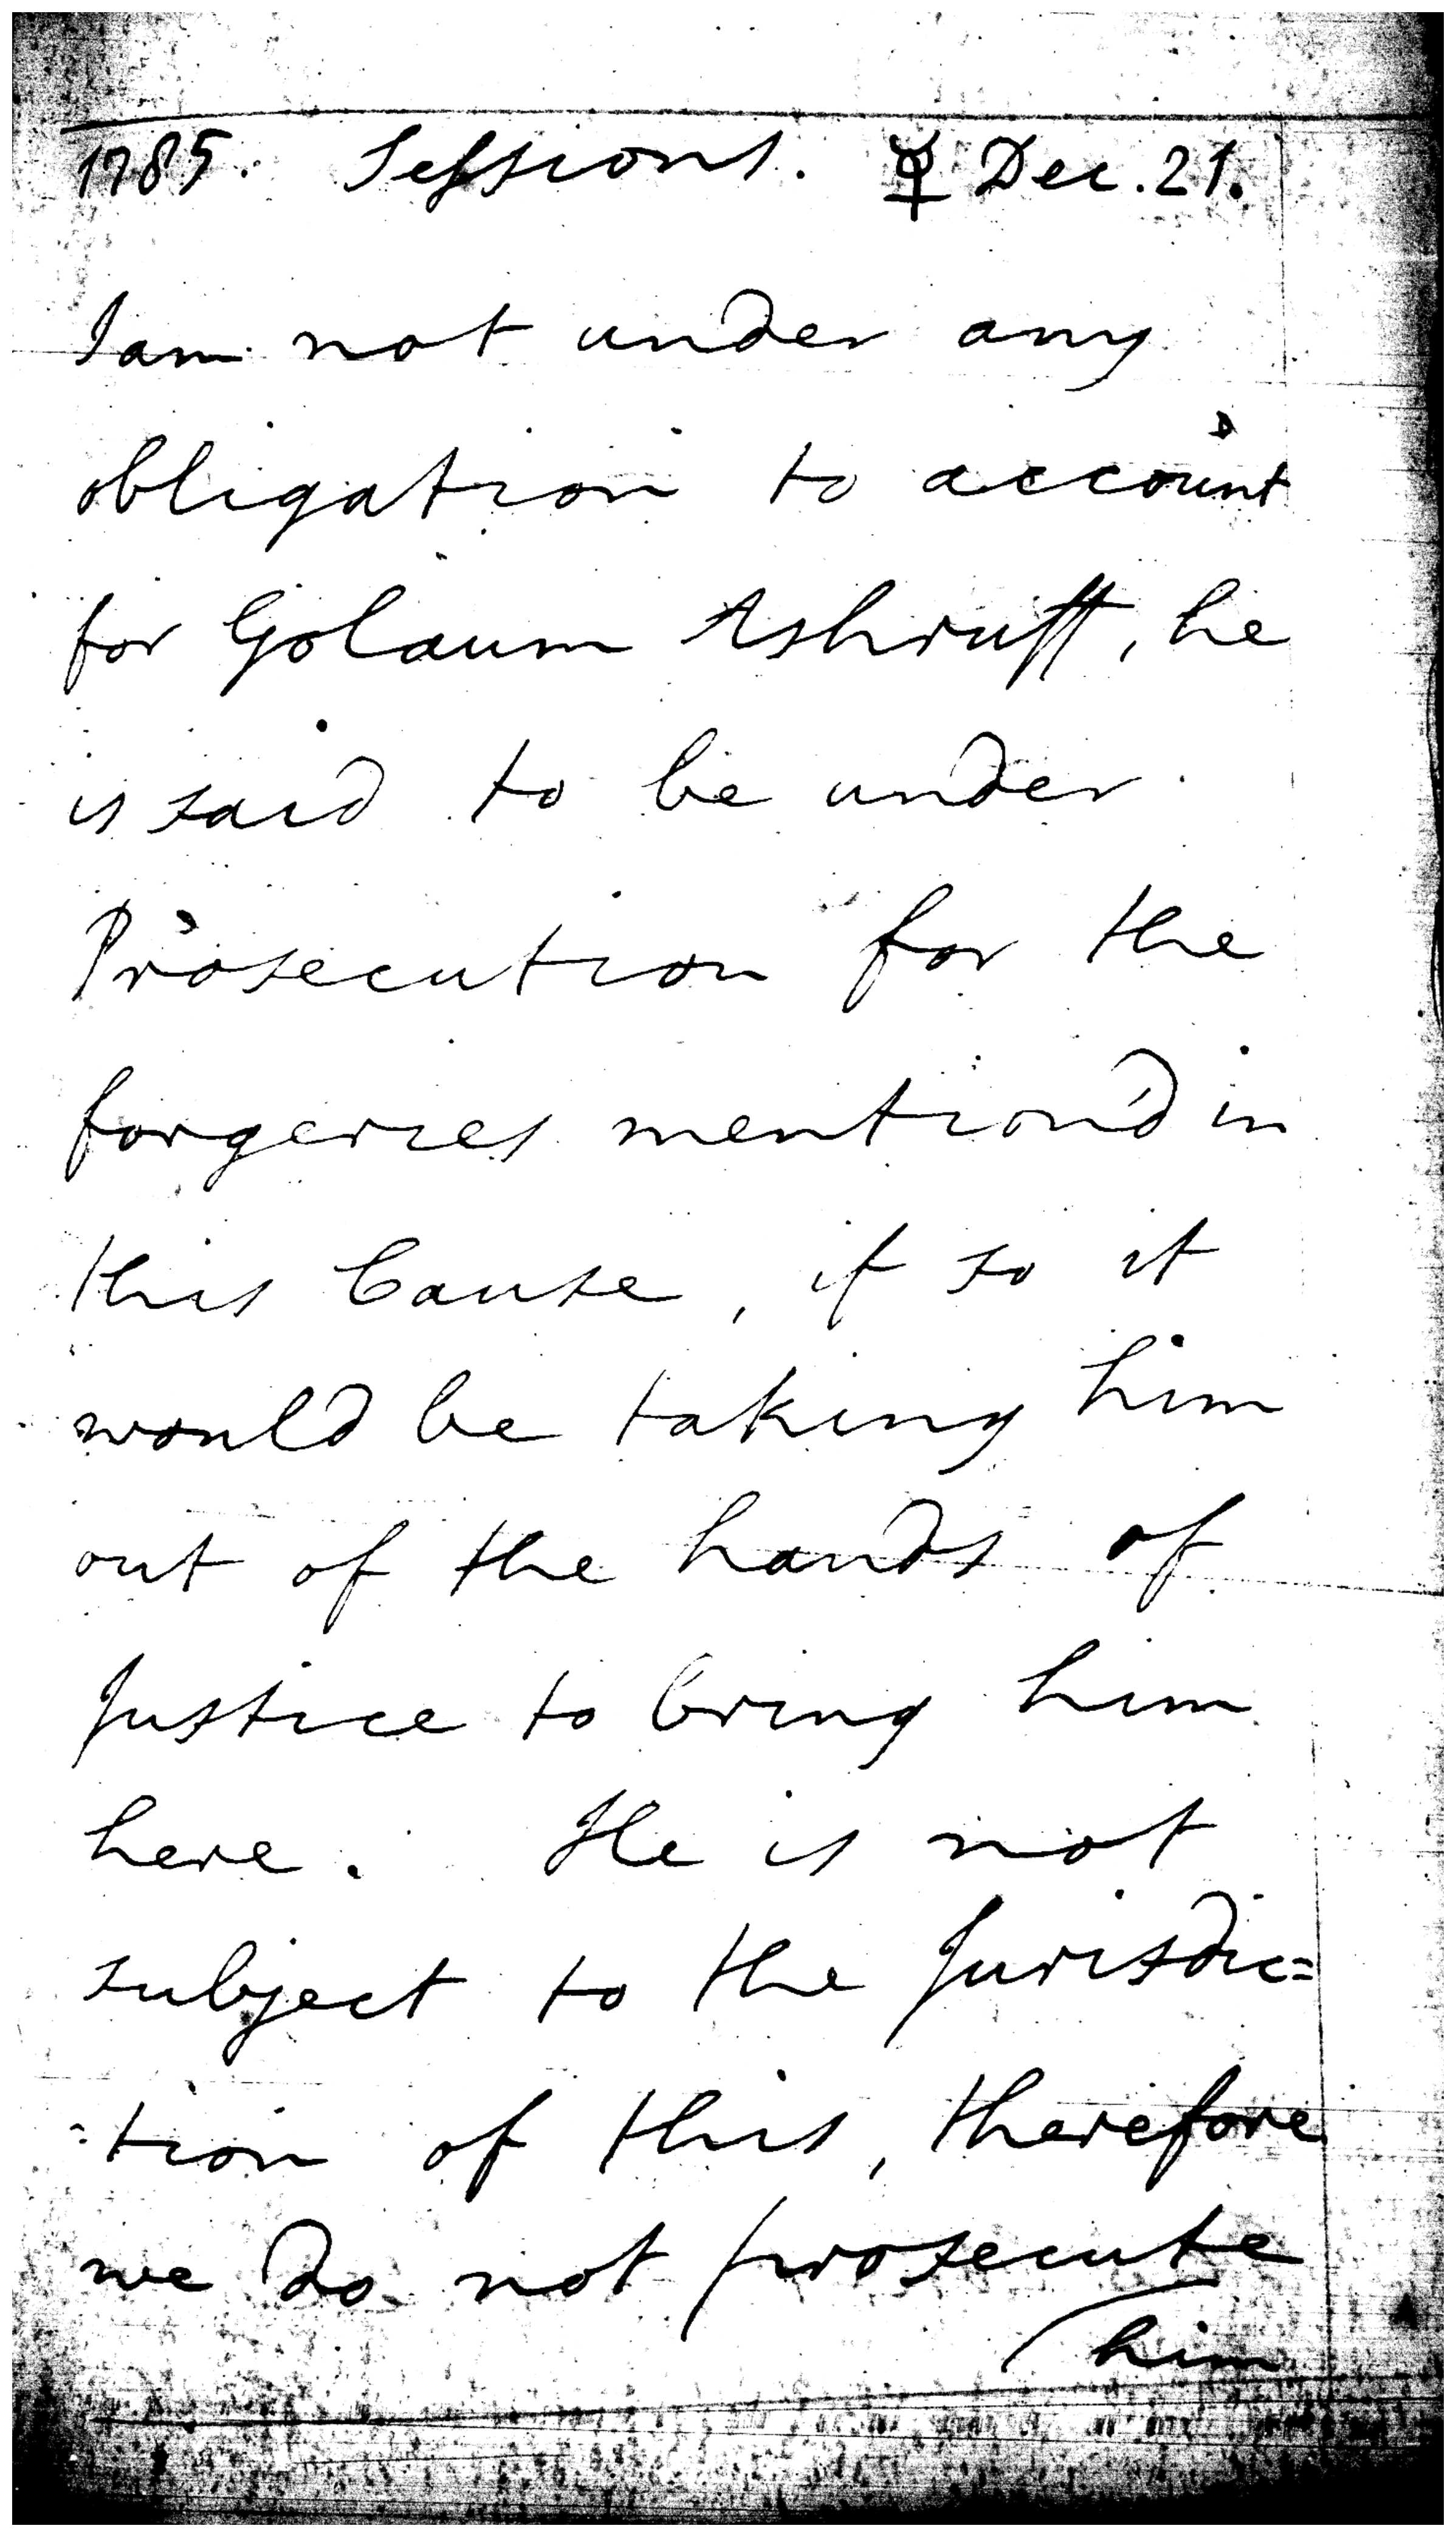 1785. Sessions. ☿ Dec. 21.
I am not under any
obligation to account
for Golaum Ashruff, he
is said to be under
Prosecution for the
forgeries mention'd in
this Cause, if so it
would be taking him
out of the hands of
Justice to bring him
here. He is not
subject to the Jurisdic=
=tion of this, therefore
we do not prosecute
him